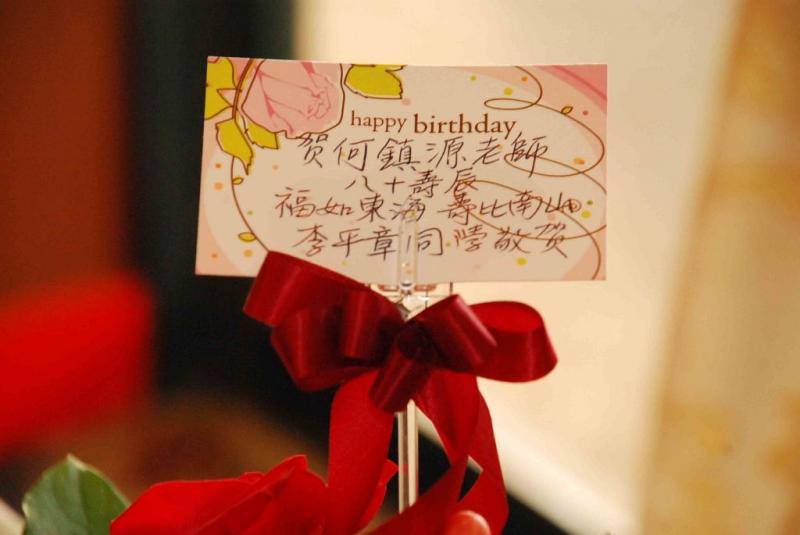 happy birthday
贺何鎮源老師
八十壽辰
福如東海 壽比南山
李平章同學敬贺